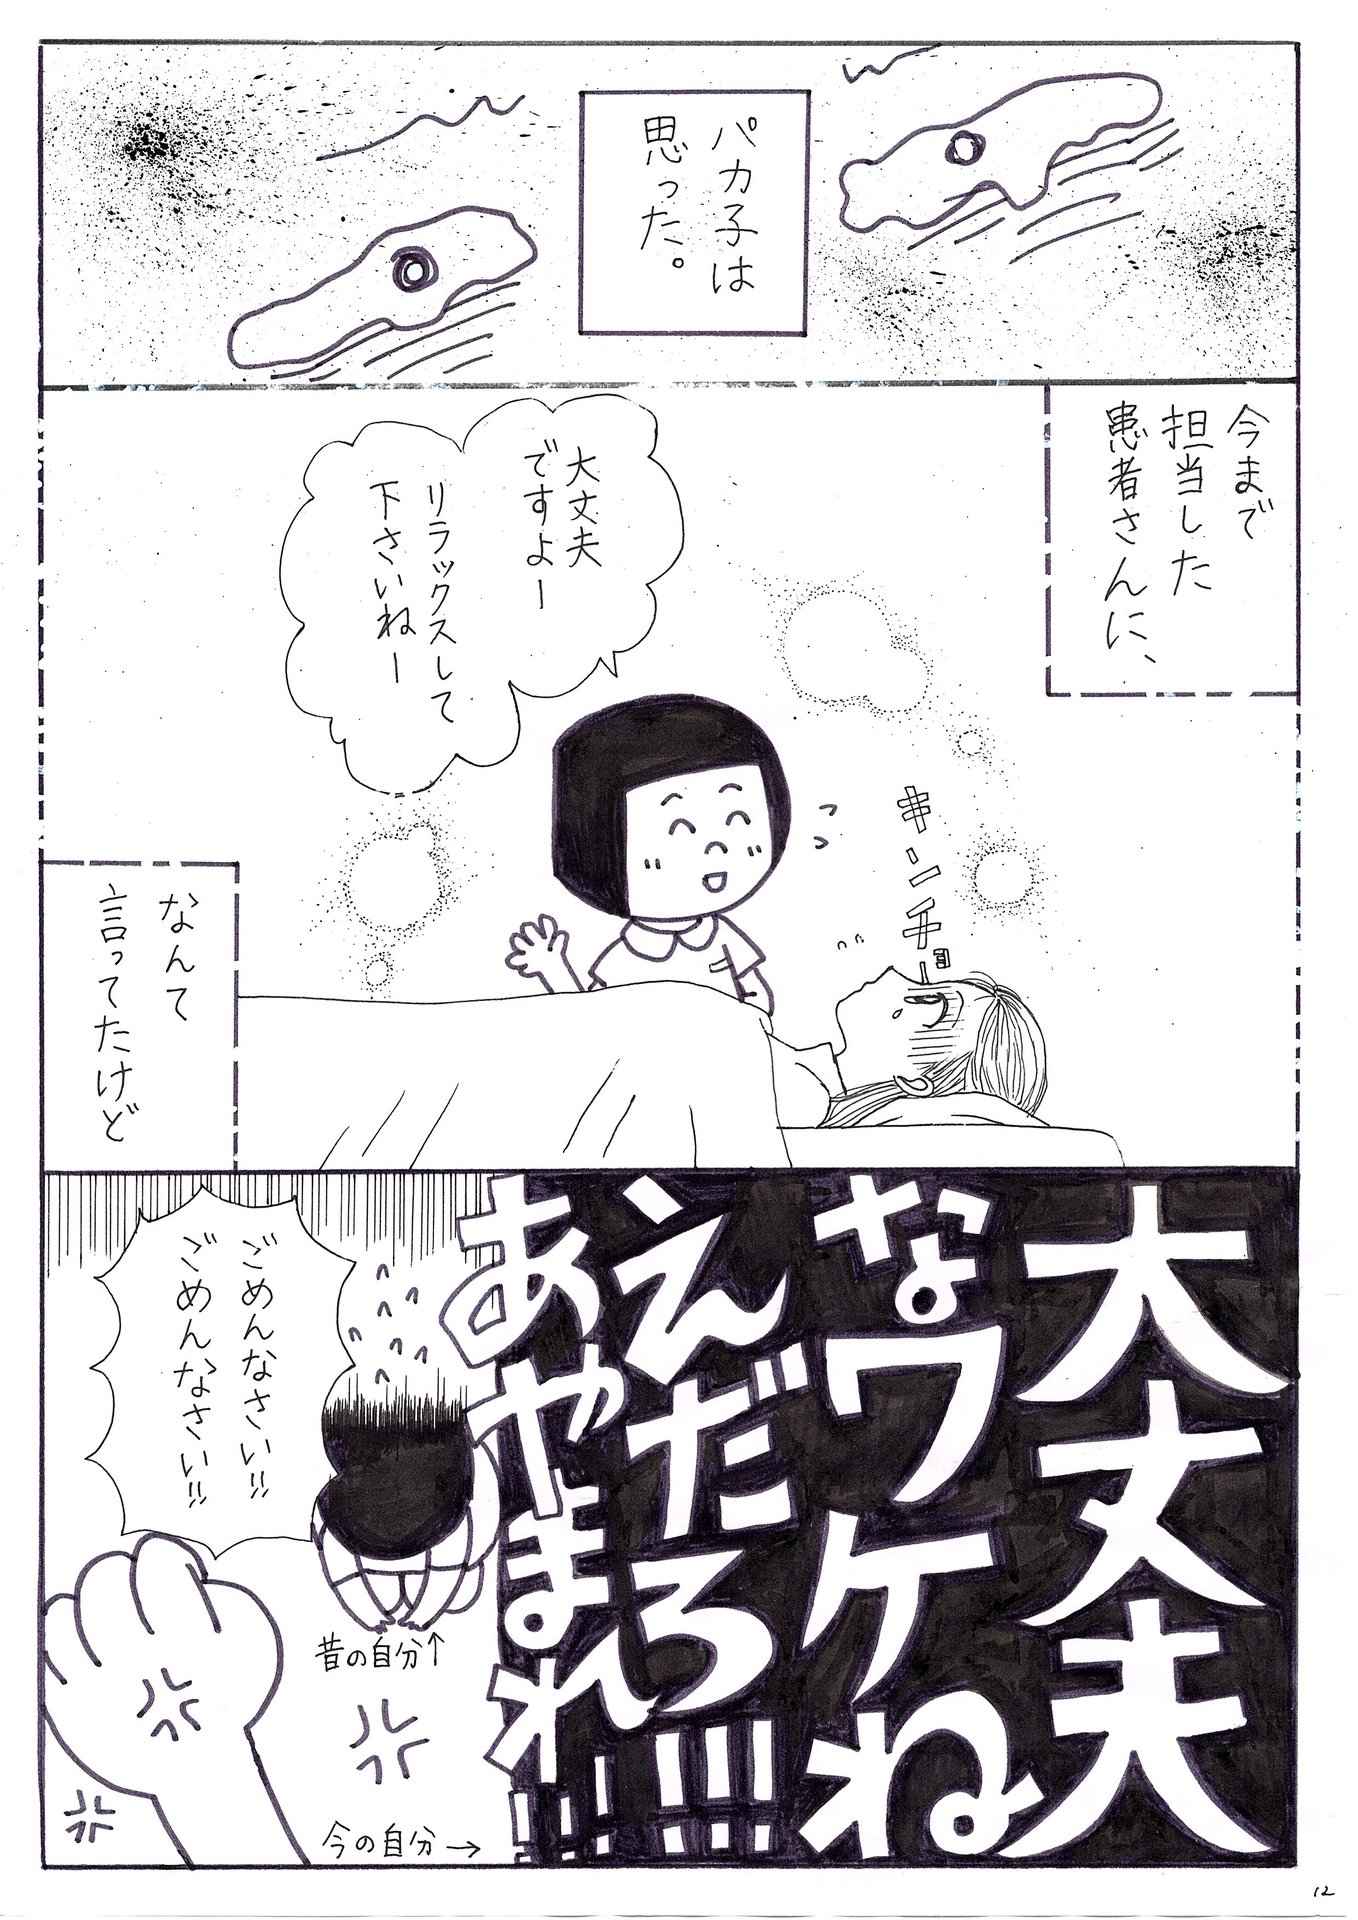 パカ子は
思った。
今まで
担当した
患者さんに、
大丈夫
ですよー
リラックスして
下さいねー
キンチョー
なんて
言ってたけど
大丈夫
なワケね
えだろ!!!
あやまれ!!!
ごめんなさい!!
ごめんなさい!!
昔の自分↑
今の自分→
12